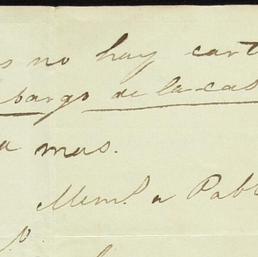 s no hay cart
bargo de la cas
a mas.
Meml. a Pabl
P.